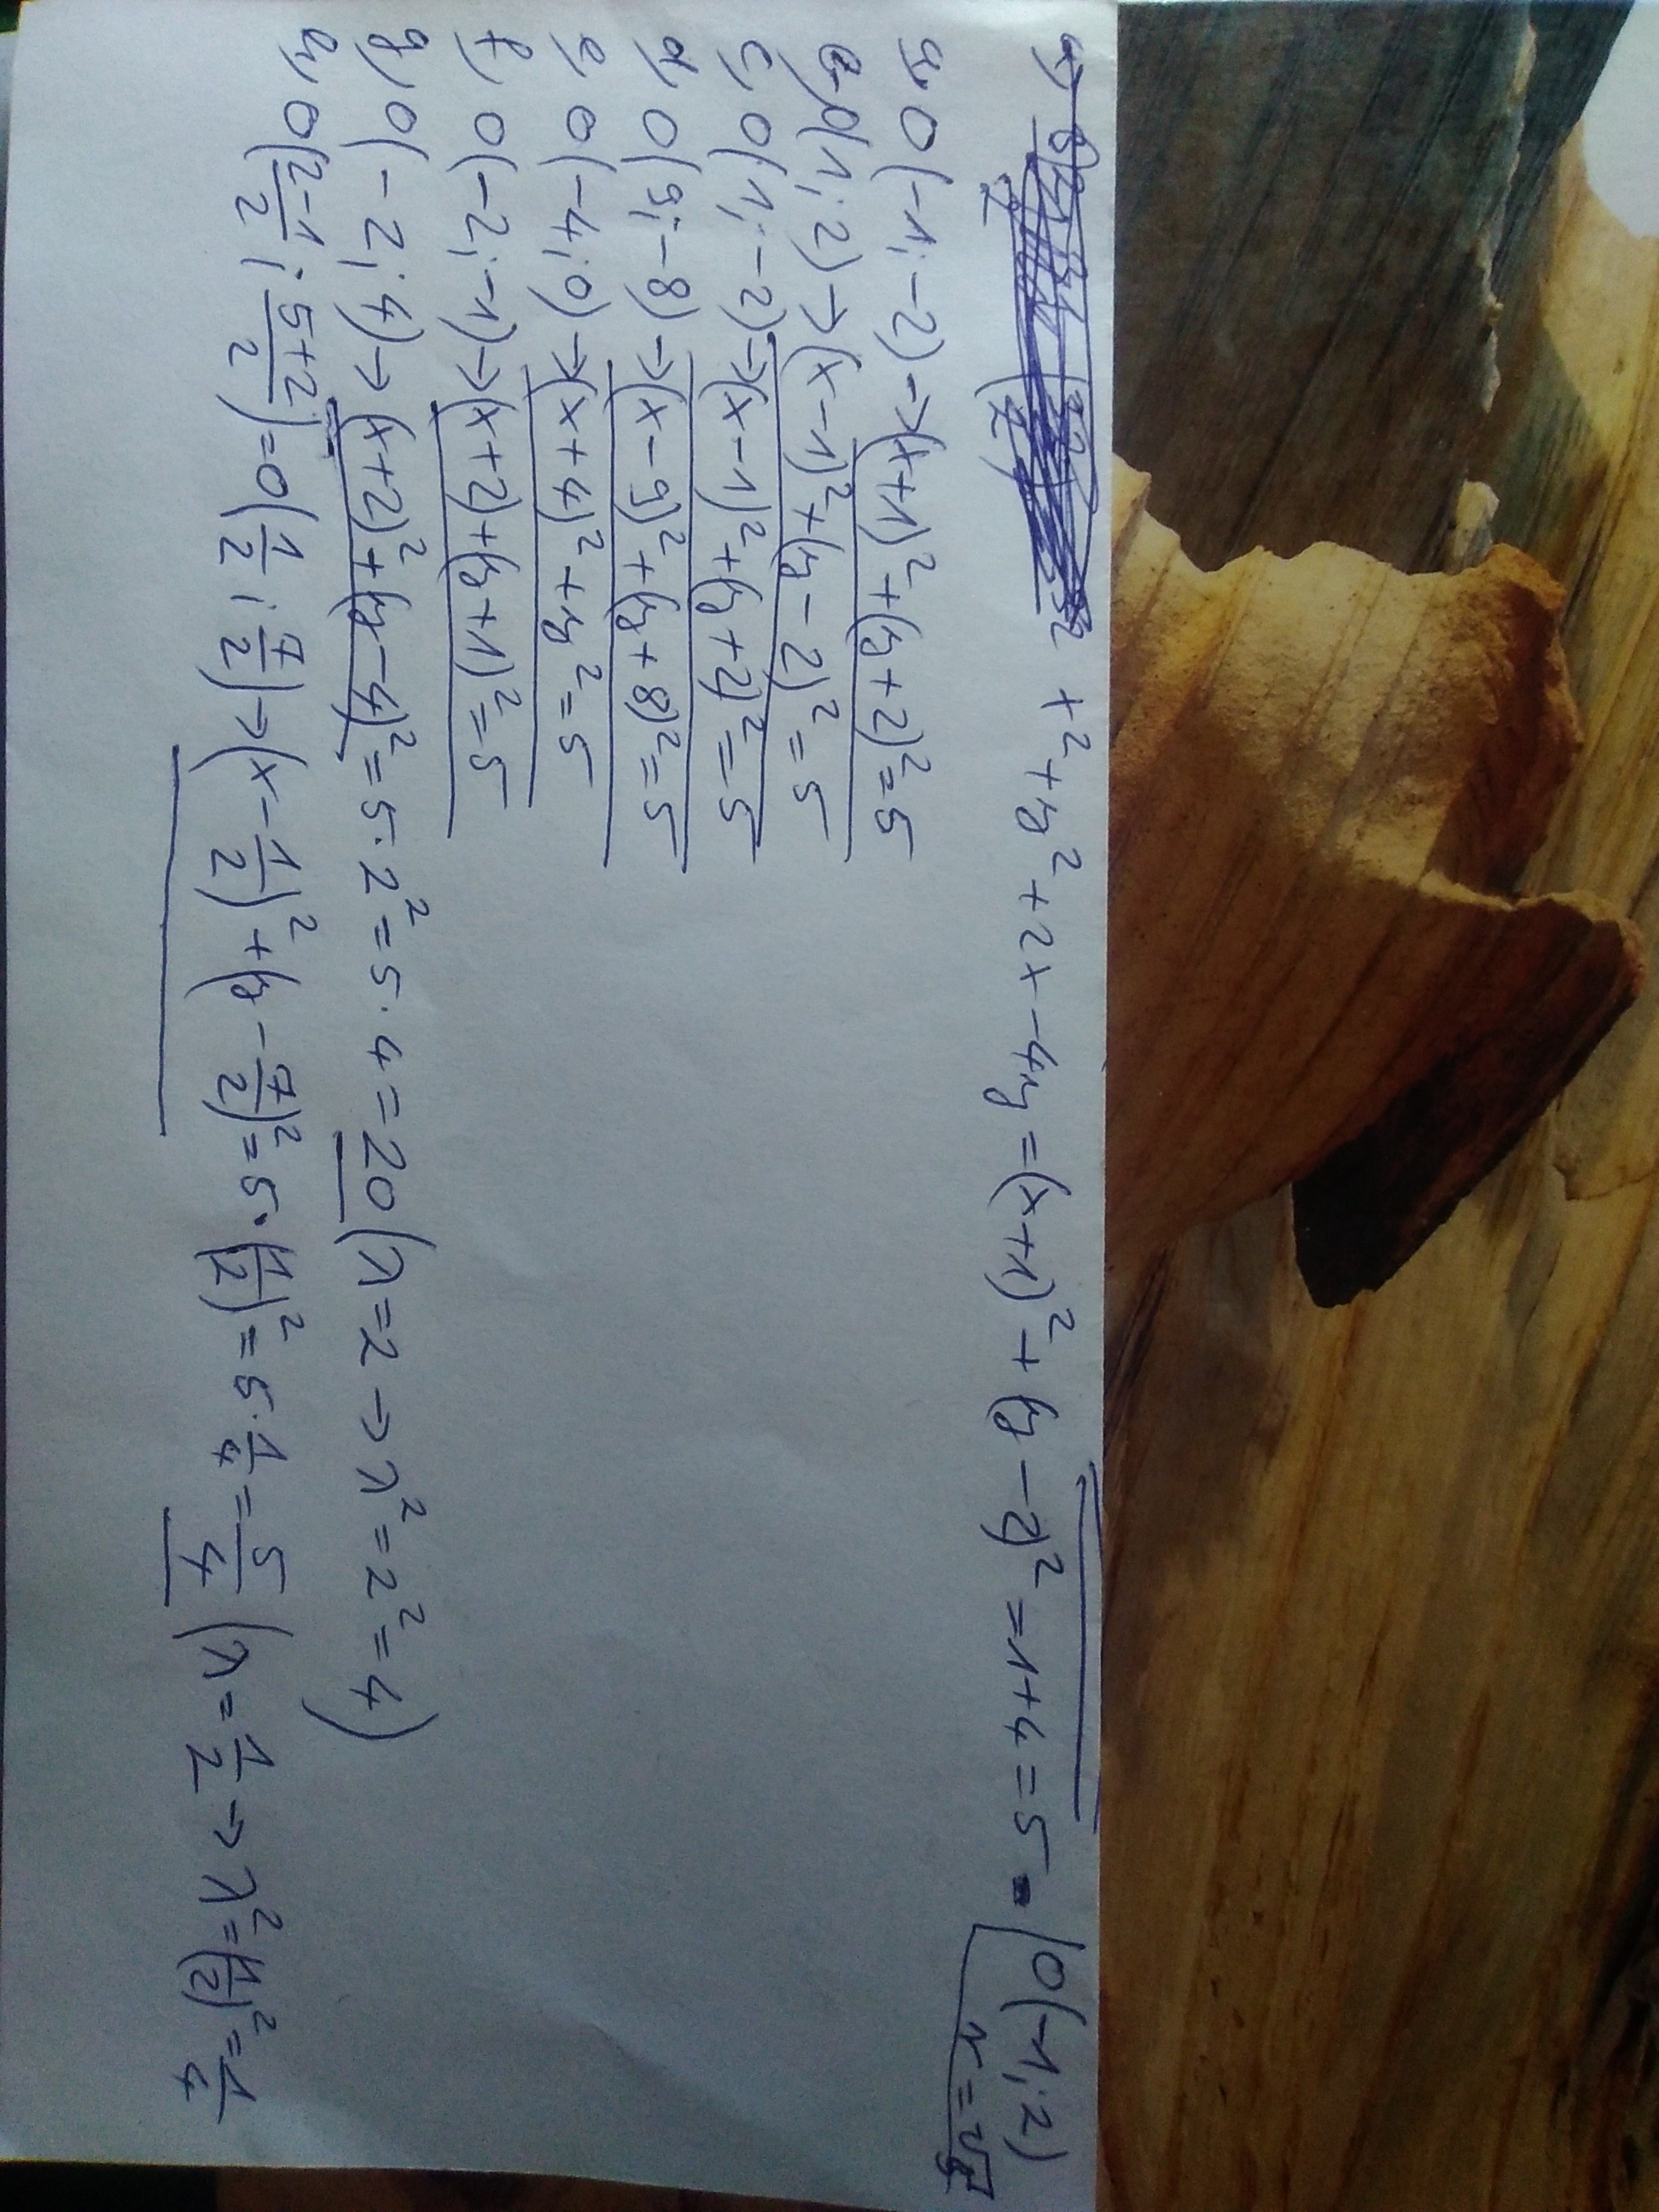 x²+y²+2x-4y=(x+1)²+(y-2)²=1+4=5 O(-1;2)
r=√5
a, O(-1;-2)->(x+1)²+(y+2)²=5
O(1;2)->(x-1)²+(y-2)²=5
c, O(1;-2)->(x-1)²+(y+2)²=5
d, O(9;-8)->(x-9)²+(y+8)²=5
e, O(-4;0)->(x+4)²+y²=5
f, O(-2;-1)->(x+2)+(y+1)²=5
g, O(-2;7)->(x+2)²+(y-7)²=5·2²=5·4=20(λ=2->λ²=2²=4)
h, O(2-1/2;5+2/2)=O(1/2;7/2)->(x-1/2)²+(y-7/2)²=5·(1/2)²=5·1/4=5/4(λ=1/2->λ²=(1/2)²=1/4